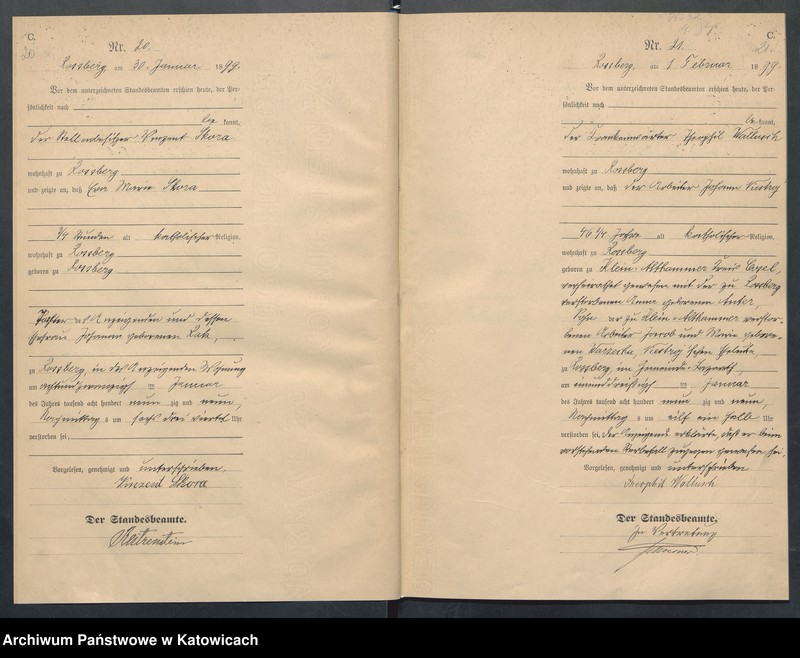 C.
20
Nr. 20.
Rossberg, am 30. Januar 1899.
Vor dem unterzeichneten Standesbeamten erschien heute, der Per-
sönlichkeit nach
be kannt,
der Stellenbesitzer Vinzent Skora
wohnhaft zu Rossberg
und zeigte an, daß Eva Marie Skora
3/4 Stunden alt katholischer Religion,
wohnhaft zu Rossberg
geboren zu Rossberg
Tochter des Anzeigenden und dessen
Ehefrau Johanna geborenen
zu Rossberg, in des Anzeigenden Wohnung
am achtundzwanzigsten Januar
des Jahres tausend acht hundert neun zig und neun,
Nachmittag s um sechs drei viertel Uhr
verstorben sei.
Vorgelesen, genehmigt und unterschrieben.
Vinzent Skora
Der Standesbeamte.
C.
21.
Nr. 21.
Rossberg, am 1. Februar 1899
Vor dem unterzeichneten Standesbeamten erschien heute, der Per-
sönlichkeit nach
be kannt,
der Krankenwärter Theophil Wallusch
wohnhaft zu Rossberg
und zeigte an, daß der Arbeiter Johann
46 1/4 Jahre alt katholischer Religion,
wohnhaft zu Rossberg
geboren zu Klein-Althammer Kreis Cosel,
verheirathet gewesen mit der zu Rossberg
verstorbenen Anna geborenen
Sohn der zu Klein-Althammer verstor-
benen Arbeiter Jacob und Marie gebore-
nen schen Eheleute,
zu Rossberg, im Gemeinde-Lazareth,
am einunddreißigsten Januar
des Jahres tausend acht hundert neun zig und neun,
Nachmittag s um eilf ein halb Uhr
verstorben sei. Der Anzeigende erklärte, daß er beim
vorstehenden Sterbefall zugegen gewesen sei.
Vorgelesen, genehmigt und unterschrieben
Theophil Wallusch
Der Standesbeamte,
In Vertretung
Archiwum Państwowe w Katowicach